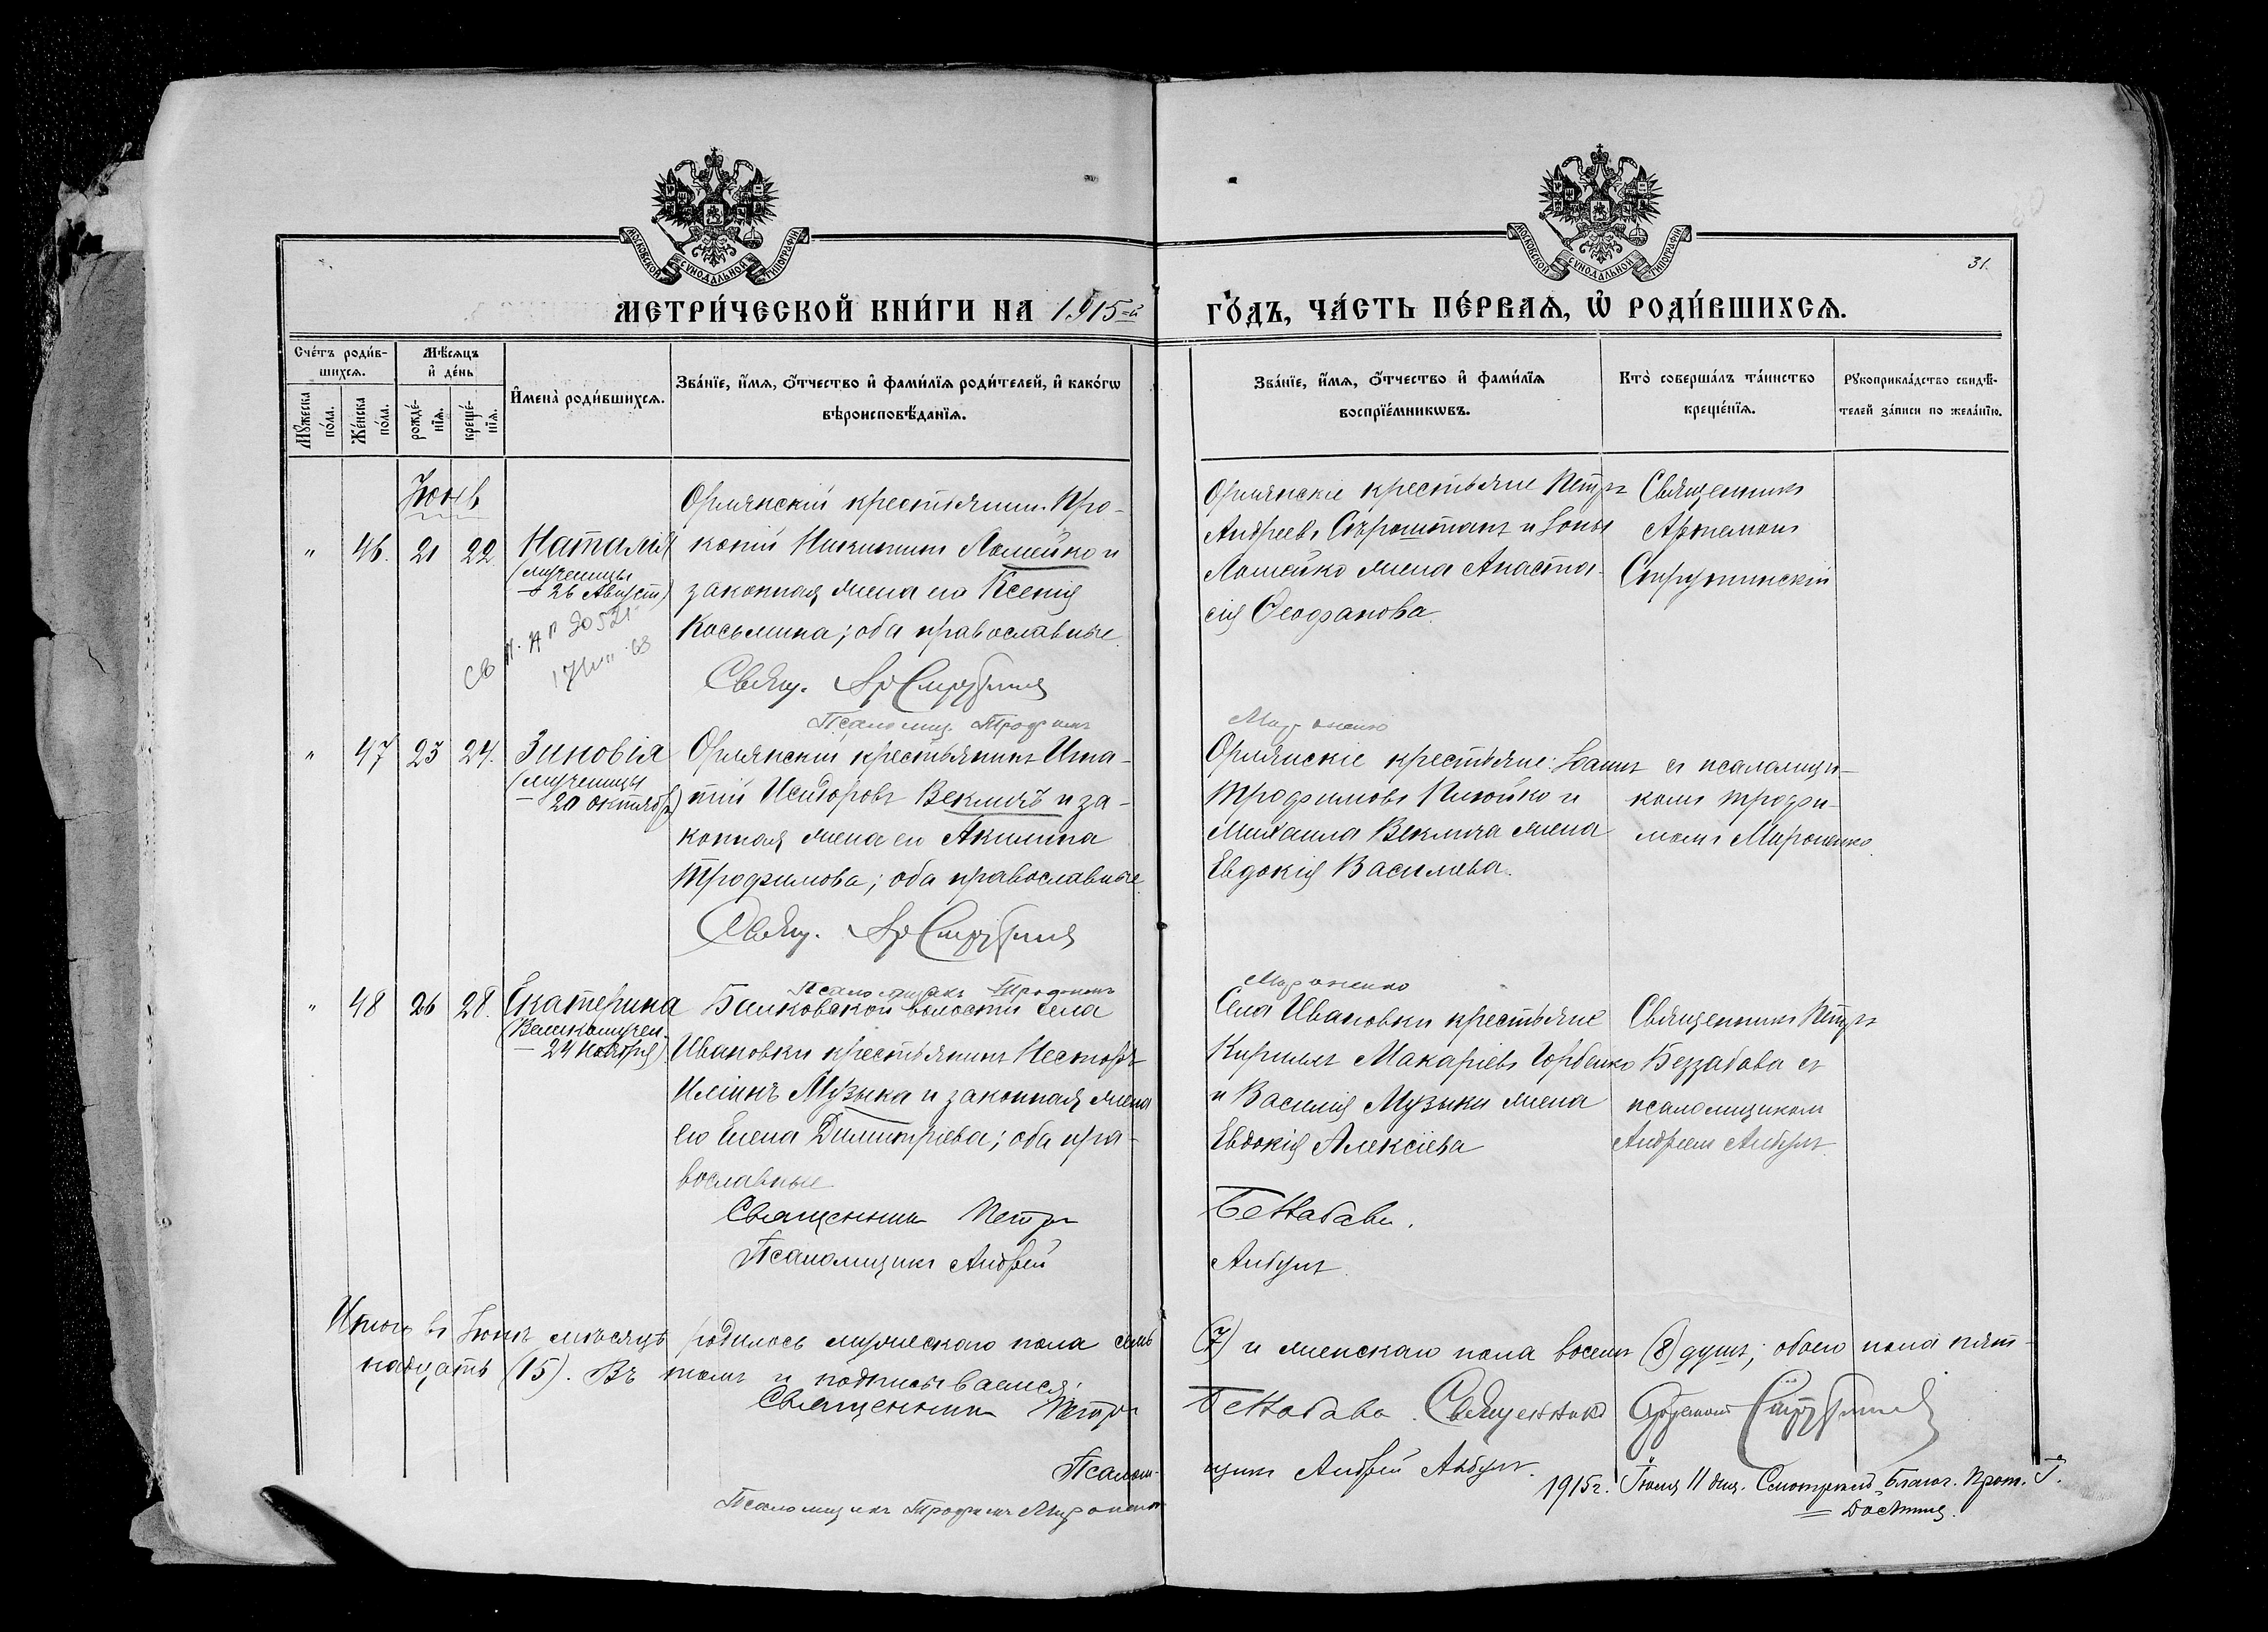 МОСКОВСКОЙ СѴНОДАЛЬНОЙ ТИПОГРАФІИ
МОСКОВСКОЙ СѴНОДАЛЬНОЙ ТИПОГРАФІИ
31.
МЕТРИ́ЧЕСКОЙ КНИ́ГИ НА 1915-й
ГО́ДЪ, ЧА́СТЬ ПЕ́РВАЯ, Ѿ РОДИ́ВШИХСЯ.
Сче́тъ роди́вшихся.
Мꙋ́жеска по́ла.
Же́нска по́ла.
Мѣ́сяцъ и҆ де́нь
рожде́нїя.
креще́нїя.
И҆мена̀ роди́вшихся.
Зва́нїе, и҆́мя, ѻ҆́тчество и҆ фами́лїя роди́телей, и҆ како́гѡ
вѣроисповѣ́данїя.
Зва́нїе, и҆́мя, ѻ҆́тчество и҆ фами́лїя
воспрїе́мникѡвъ.
Кто̀ соверша́лъ та́инство
креще́нїя.
Рꙋкоприкла́дство свидѣ́-
телей за́писи по жела́нїю.
Іюнь
" 46. 21 22. Наталія
(мученицы
– 26 Августа)
Орлянскій крестьянинъ Про-
копій Никитинъ Ломейко и
законная жена его Ксенія
Косьмина; оба православные.
Свящ. Ар Струтинскій
Псаломщ. Трофимъ
Орлянскіе крестьяне Петръ
Андреевъ и
Ломейко жена Анаста-
сія Ѳеофанова.
Мироненко
Священникъ
Артемонъ
Струтинскій
" 47 23 24. Зиновія
(мученицы
– 20 октября)
Орлянскій крестьянинъ Игна-
тій Исидоровъ Векличъ и за-
конная жена его Акилина
Трофимова; оба православные.
Свящ. Ар Струтинскій
Псаломщикъ Трофимъ
Орлянскіе крестьяне: Іоаннъ
Трофимовъ и
Михаила Веклича жена
Евдокія Василіева.
Мироненко
съ псаломщи-
комъ Трофи-
момъ Мироненко.
" 48 26 28. Екатерина
(Великомучен.
– 24 ноября).
Балковской волости села
Ивановки крестьянинъ Несторъ
Иліинъ Музыка и законная жена
его Елена Димитріева; оба пра-
вославные
Священникъ Петръ
Псаломщикъ Андрей
Села Ивановки крестьяне
Кириллъ Макаріевъ Горбенко
и Василія Музыки жена
Евдокія Алексіева
Беззабава.
Анбулъ.
Священникъ Петръ
Беззабава съ
псаломщикомъ
Андреемъ Анбулъ.
Итого въ Іюнѣ мѣсяцѣ родилось мужескаго пола семь (7) и женскаго пола восемь (8) душъ; обоего пола пят-
надцать (15). Въ томъ и подписываемся:
Священникъ Петръ Беззабава. Священникъ Артемонъ Струтинскій
Псалом- щикъ Андрей Анбулъ.
Псаломщикъ Трофимъ Мироненко
1915г. Іюля 11 дня. Смотрѣлъ Благоч. Прот. Г.